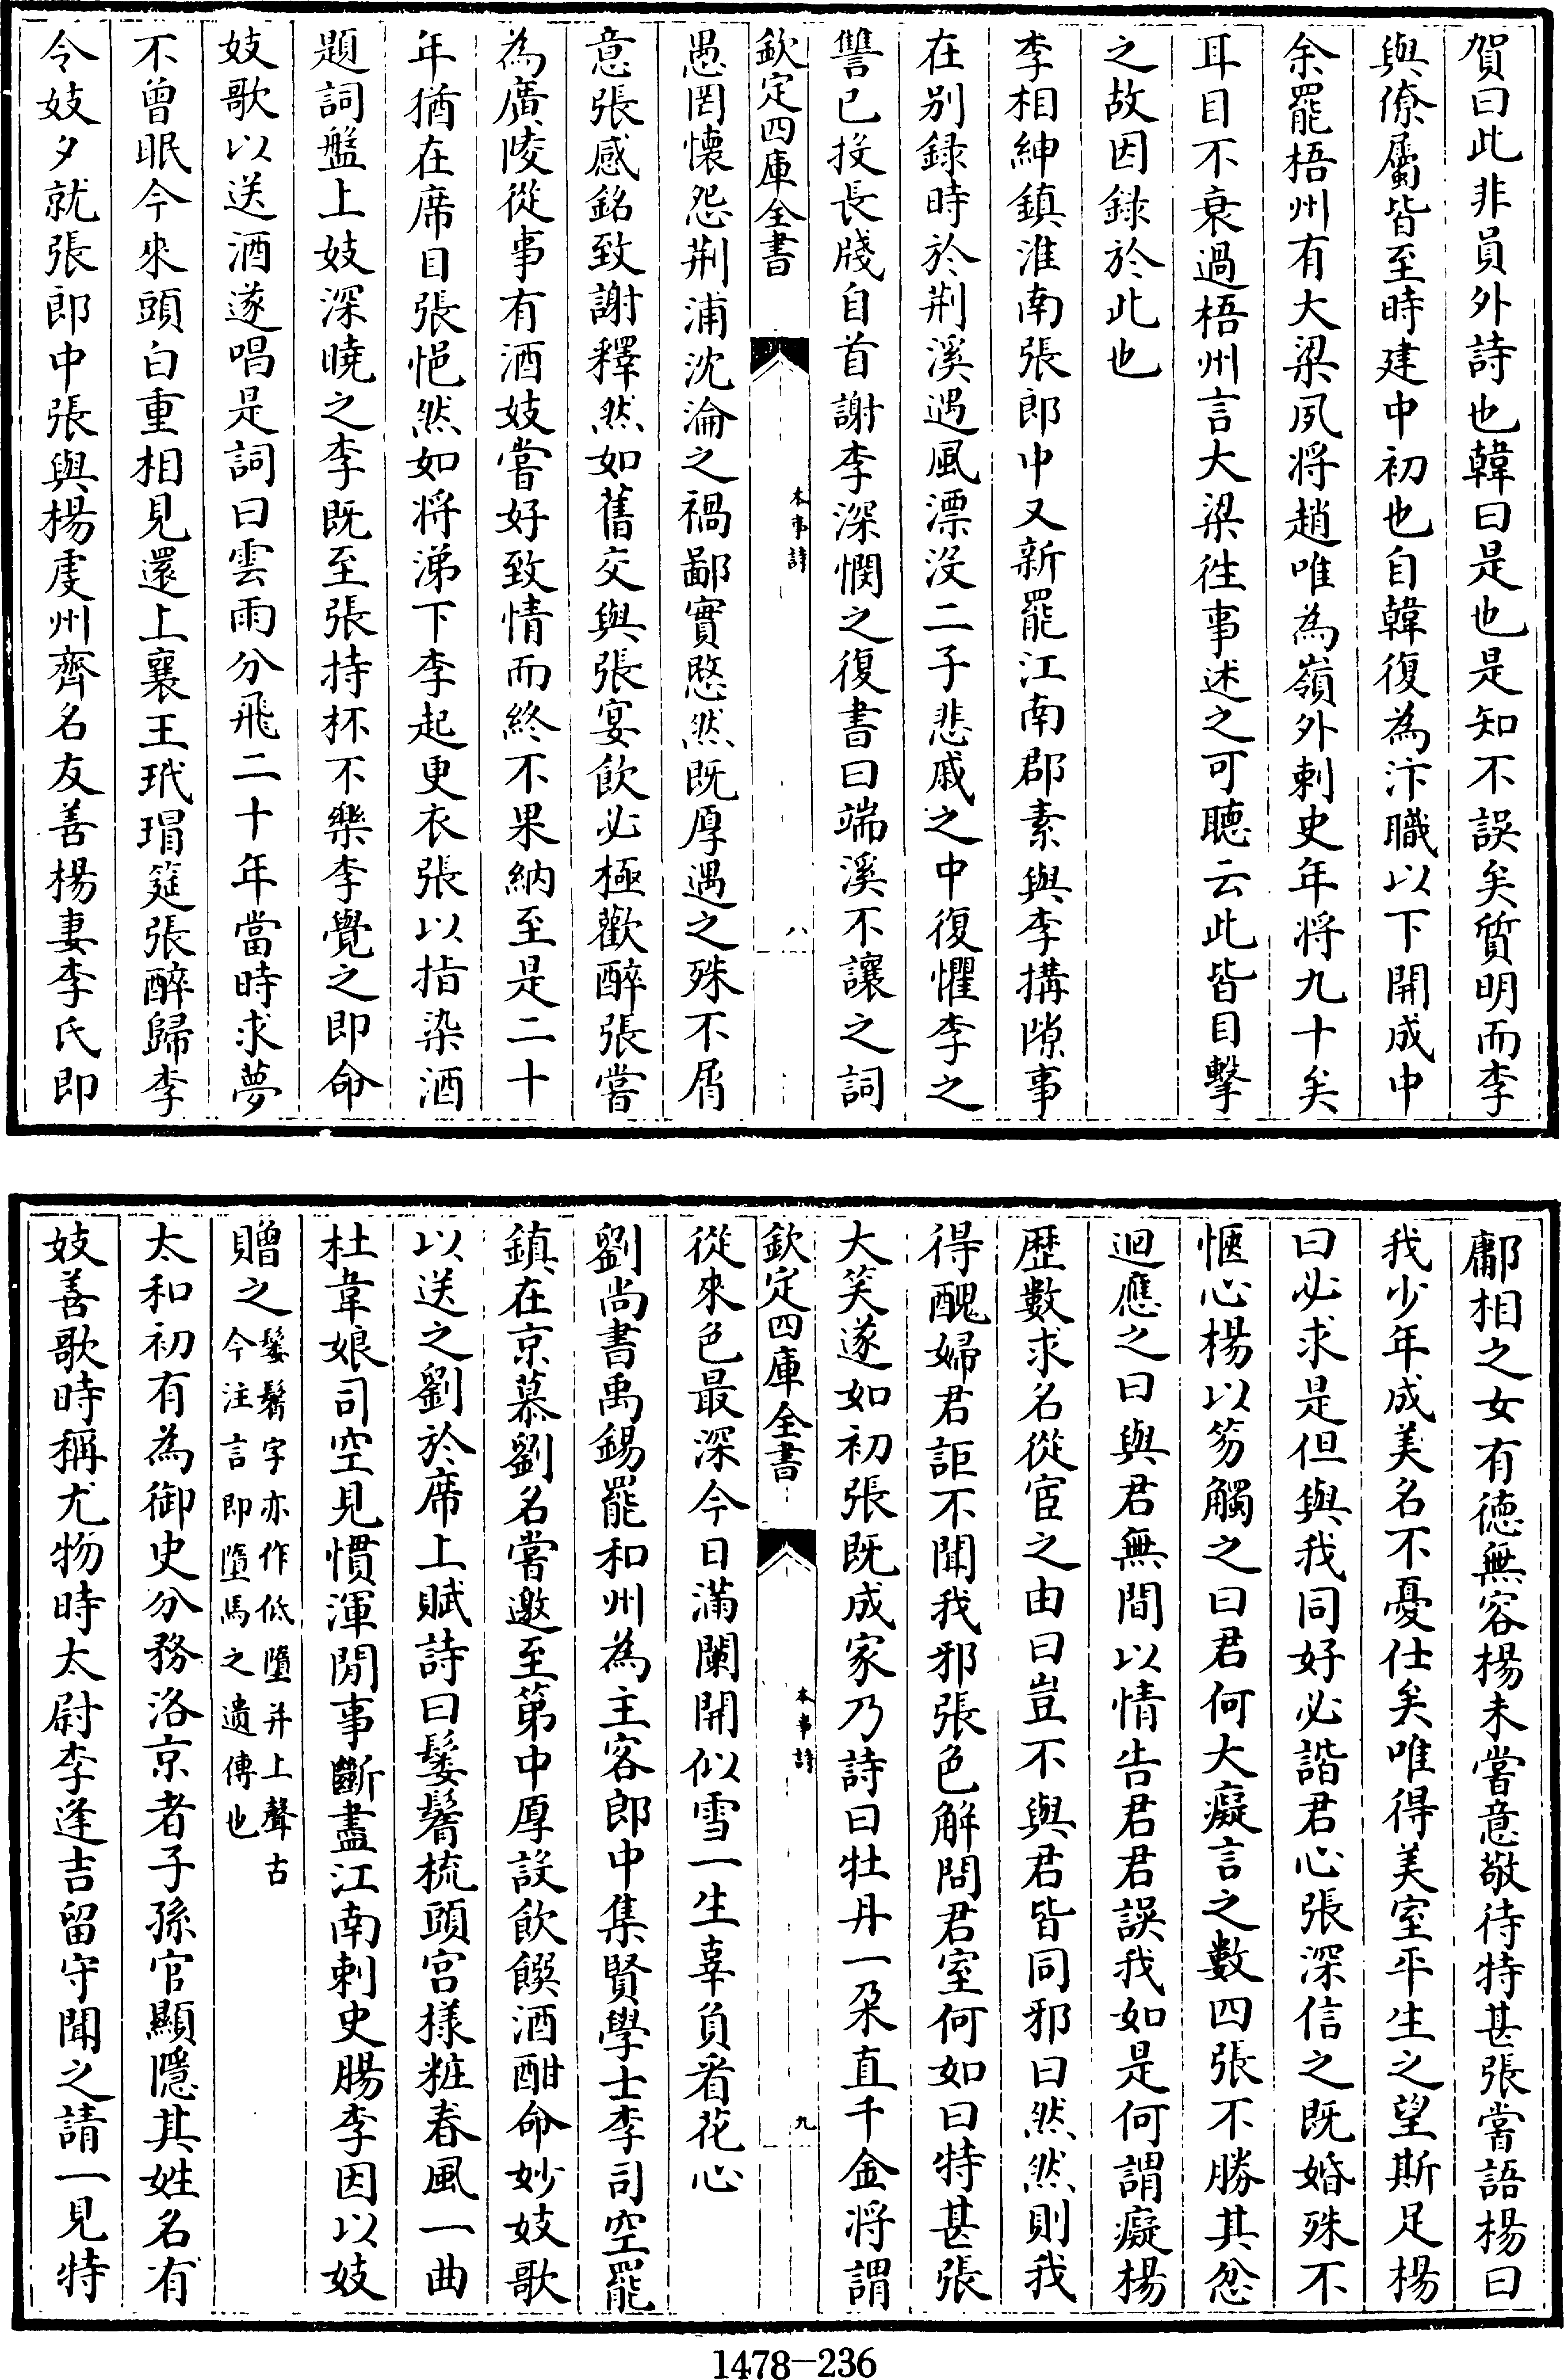 賀曰此非員外詩也韓曰是也是知不誤矣質明而李
與僚屬皆至時建中初也自韓復為汴職以下開成中
余罷梧州有大梁夙将趙唯為嶺外刺史年将九十矣
耳目不衰過梧州言大梁徃事述之可聽云此皆目擊
之故因録於此也
李相紳鎮淮南張郎中又新罷江南郡素與李搆隙事
在别録時於荆溪遇風漂沒二子悲戚之中復懼李之
讐已投長牋自首謝李深憫之復書曰端溪不讓之詞
欽定四庫全書
本事詩
八
愚罔懷怨荆浦沈淪之禍鄙實愍然既厚遇之殊不屑
意張感銘致謝釋然如舊交與張宴飲必極歡醉張嘗
為廣陵從事有酒妓嘗好致情而終不果納至是二十
年猶在席目張悒然如将涕下李起更衣張以指染酒
題詞盤上妓深曉之李既至張持杯不樂李覺之即命
妓歌以送酒遂唱是詞曰雲雨分飛二十年當時求夢
不曾眠今來頭白重相見還上襄王玳瑁筵張醉歸李
令妓夕就張郎中張與楊虔州齊名友善楊妻李氏即
鄘相之女有德無容楊未嘗意敬待特甚張嘗語楊曰
我少年成美名不憂仕矣唯得美室平生之望斯足楊
曰必求是但與我同好必諧君心張深信之既婚殊不
愜心楊以笏觸之曰君何大癡言之數四張不勝其忿
迴應之曰與君無間以情告君君誤我如是何謂癡楊
歴數求名從宦之由曰豈不與君皆同邪曰然然則我
得醜婦君詎不聞我邪張色解問君室何如曰特甚張
大笑遂如初張既成家乃詩曰牡丹一朶直千金将謂
欽定四庫全書
本事詩
九
從來色最深今日滿闌開似雪一生辜負看花心
劉尚書禹錫罷和州為主客郎中集賢學士李司空罷
鎮在京慕劉名嘗邀至第中厚設飲饌酒酣命妙妓歌
以送之劉於席上賦詩曰鬖鬌梳頭宫様粧春風一曲
杜韋娘司空見慣渾閒事斷盡江南刺史腸李因以妓
贈之鬖鬌字亦作低墮并上聲古
今注言即墮馬之遺傳也
太和初有為御史分務洛京者子孫官顯隱其姓名有
妓善歌時稱尤物時太尉李逢吉留守聞之請一見特
1478-236